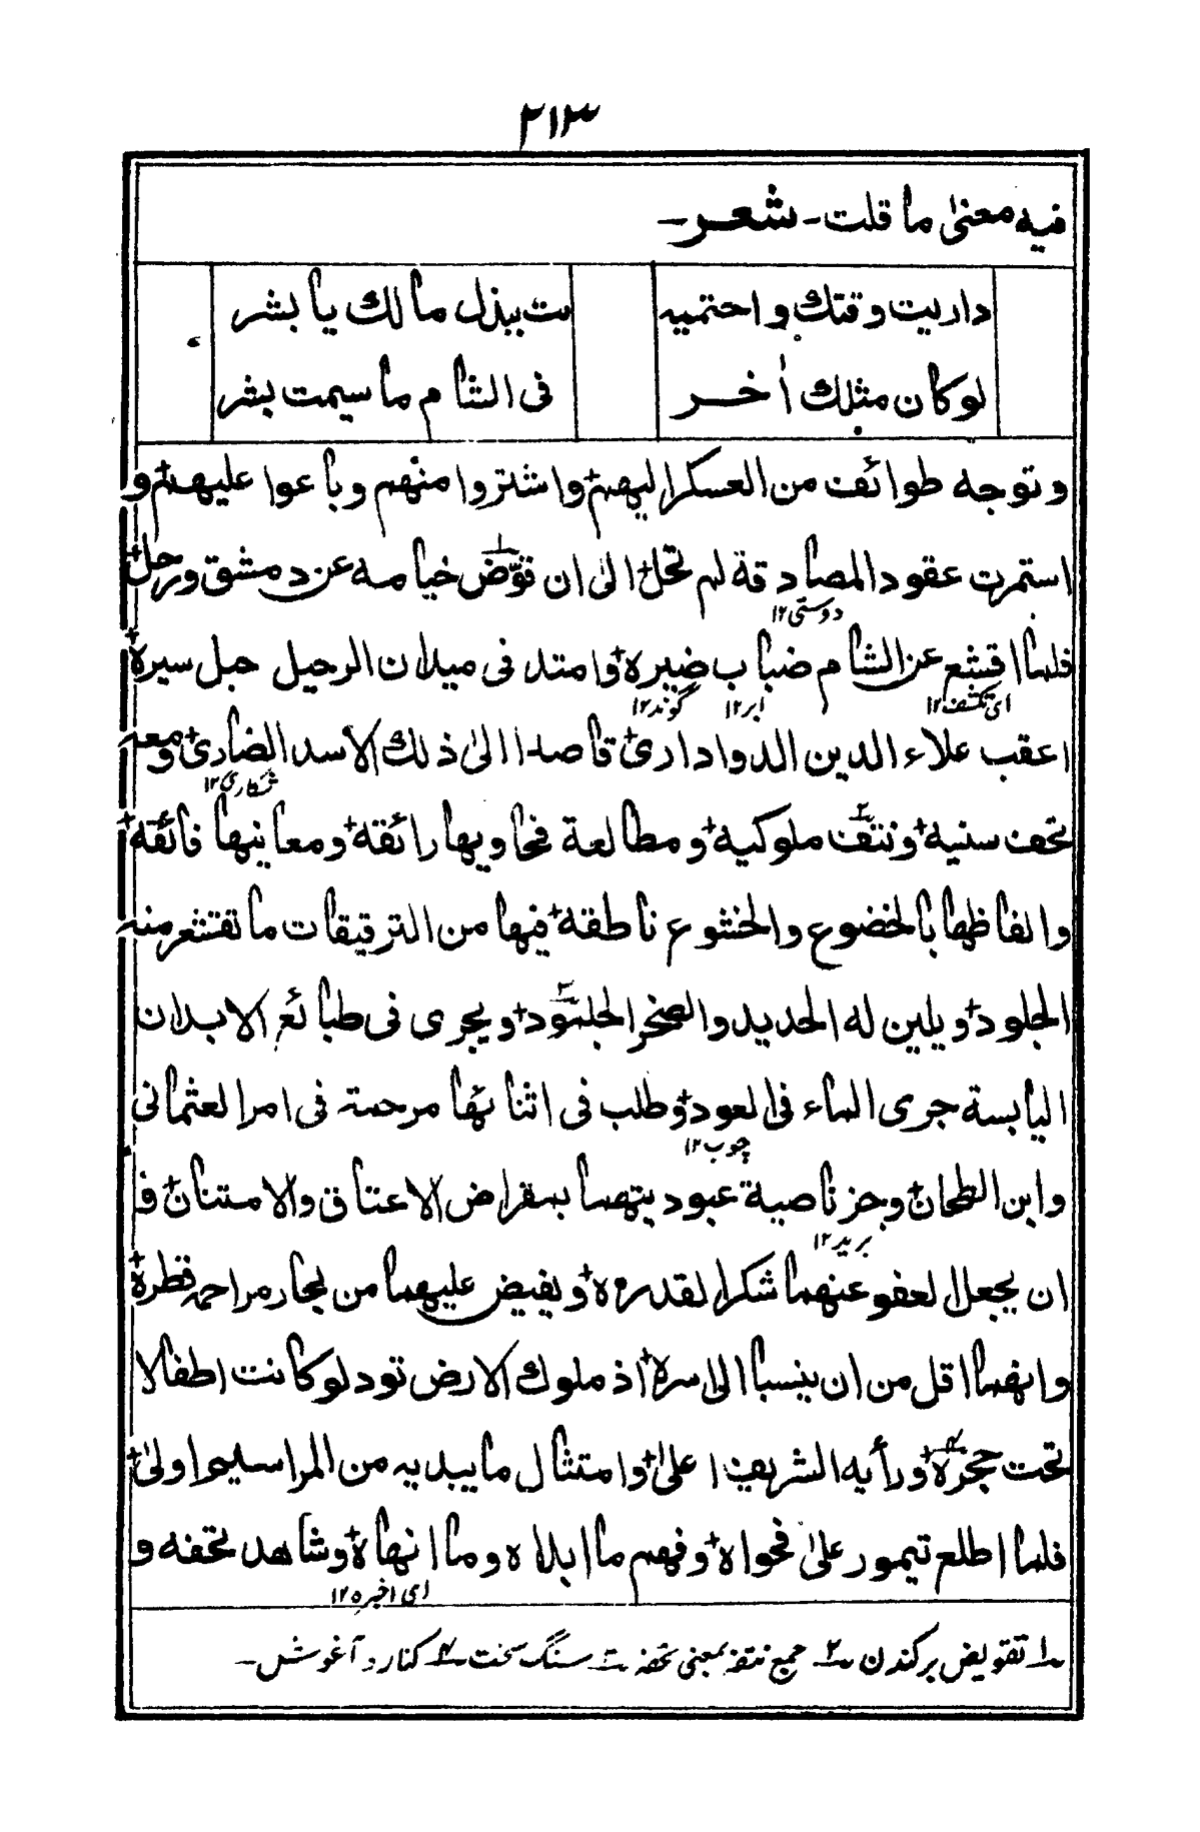 ٢١٣
فيه معنىٰ ما قلت ـ شعر ـ
داريت وقتك واحتميـ ـت ببذل مالك يا بشر
لو كان مثلك أخر في الشام ما سيمت بشر
وتوجه طوائف من العسكر اليهم+ واشتروا منهم وباعوا عليهم+ و
استمرت عقود المصادقة لم تحل+ الىٰ ان قوّض خيامه عن دمشق ورحل+
دوستي ١٢
فلما اقشع عن الشام ضباب ضيره+ وامتد في ميدان الرحيل حبل سيره+
اي تكشف ١٢ ابر ١٢ گوند ١٢
اعقب علاء الدين الدواداري+ قاصدا الىٰ ذلك الاسد الضاري+ ومعه
شكاري ١٢
تحف سنية+ ونتف٢ ملوكية+ ومطالعة فحاويها رائقة+ ومعانيها فائقة+
والفاظها بالخضوع والخشوع ناطقة+ فيها من الترقيقات ما تقشعر منه
الجلود+ ويلين له الحديد والصخر الجلمود٣+ ويجري في طبائع الابدان
اليابسة جري الماء في العود+ وطلب في اثنائها مرحمته في امر العثماني
چوب ١٢
وابن الطحان+ وجز ناصية عبوديتهما بمقراض الاعتاق والامتنان+ و
بريد ١٢
ان يجعل لعفو عنهما شكرا لقدرة+ ويفيض عليهما من بحار مراحمه قطرة+
وانهما اقل من ان ينسبا الى اسره+ اذ ملوك الارض تود لو كانت اطفالا
تحت حجره٤+ ورأيه الشريف اعلىٰ+ وامتثال ما يبديه من المراسيم اولىٰ+
فلما اطلع تيمور علىٰ فحواه+ وفهم ما ابداه وما انهاه+ وشاهد تحفه و
اي اخبره ١٢
١ تقويض بركندن ٢ جمع نتفه بمعني تحفه ٣ سنگ سخت ٤ كنار و آغوش ـ